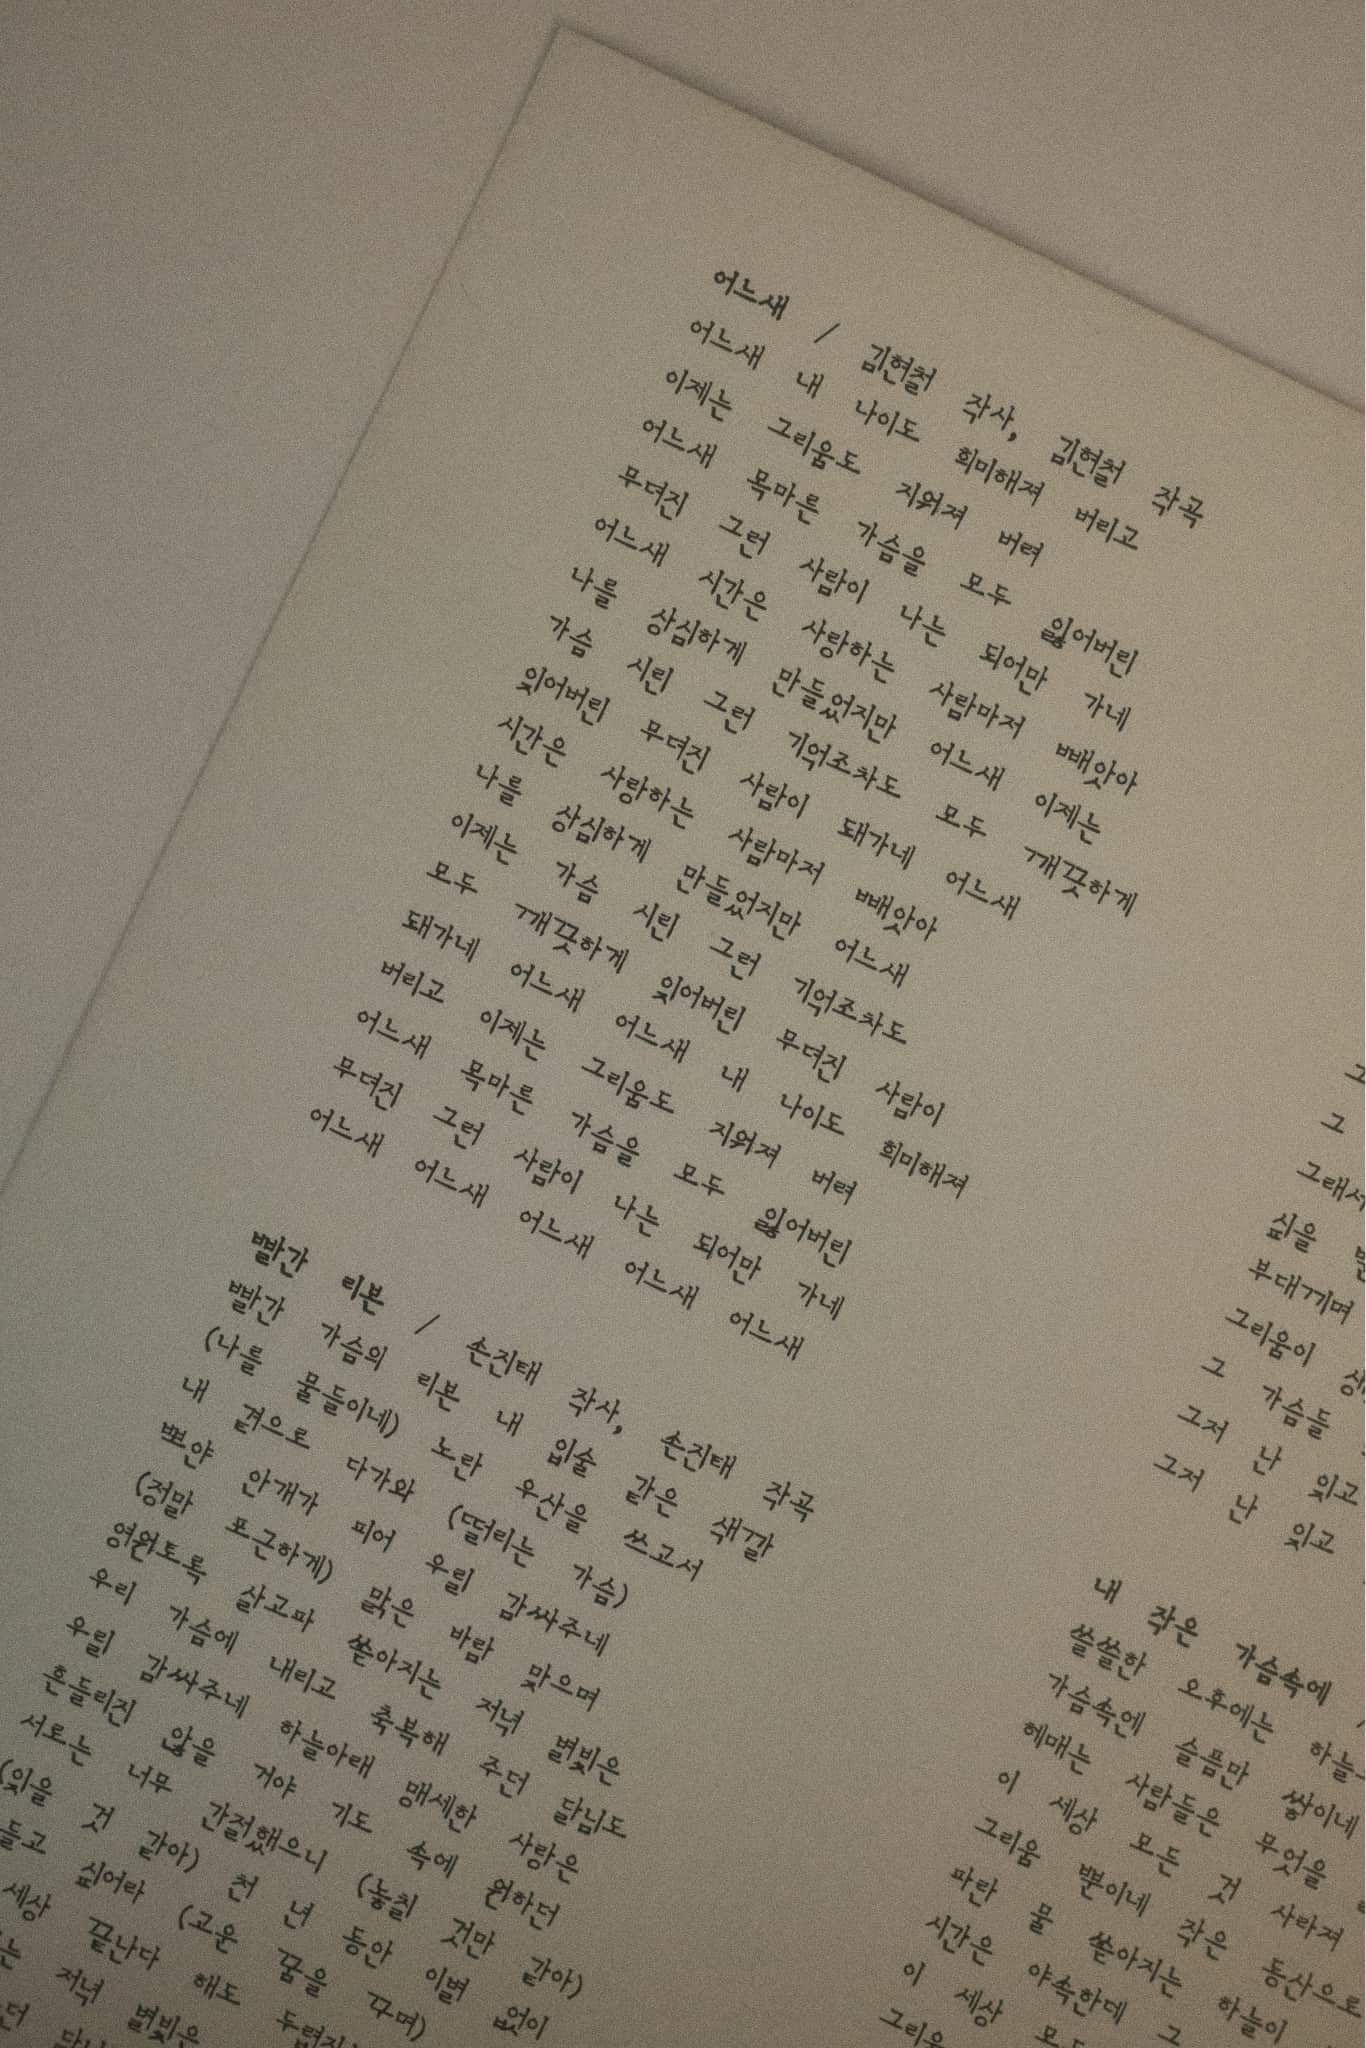 어느새 / 김현철 작사, 김현철 작곡
어느새 내 나이도 희미해져 버리고
이제는 그리움도 지워져 버려
어느새 목마른 가슴을 모두 잃어버린
무뎌진 그런 사람이 나는 되어만 가네
어느새 시간은 사랑하는 사람마저 빼앗아
나를 상심하게 만들었지만 어느새 이제는
가슴 시린 그런 기억조차도 모두 깨끗하게
잊어버린 무뎌진 사람이 돼가네 어느새
시간은 사랑하는 사람마저 빼앗아
나를 상심하게 만들었지만 어느새
이제는 가슴 시린 그런 기억조차도
모두 깨끗하게 잊어버린 무뎌진 사람이
돼가네 어느새 어느새 내 나이도 희미해져
버리고 이제는 그리움도 지워져 버려
어느새 목마른 가슴을 모두 잃어버린
무뎌진 그런 사람이 나는 되어만 가네
어느새 어느새 어느새 어느새 어느새
빨간 리본 / 손진태 작사, 손진태 작곡
빨간 가슴의 리본 내 입술 같은 색깔
(나를 물들이네) 노란 우산을 쓰고서
내 곁으로 다가와 (떨리는 가슴)
뽀얀 안개가 피어 우릴 감싸주네
(정말 포근하게) 맑은 바람 맞으며
영원토록 살고파 쏟아지는 저녁 별빛은
우리 가슴에 내리고 축복해 주던 달님도
우릴 감싸주네 하늘아래 맹세한 사랑은
흔들리진 않을 거야 기도 속에 원하던
서로는 너무 간절했으니 (놓칠 것만 같아)
(있을 것 같아) 천 년 동안 이별 없이
들고 싶어라 (고운 꿈을 꾸며)
세상 끝난다 해도
저녁 별빛은
그
그
그래서
싶을
부대끼며
그리움이
그 가슴들
그저 난 잊고
그저 난 잊고
내 작은 가슴속에 /
쓸쓸한 오후에는
가슴속엔 슬픔만 쌓이네
헤매는 사람들은 무엇을
이 세상 모든 것 사라져
그리움 뿐이네 작은 동산으로
파란 물 쏟아지는 하늘이
시간은 야속한데 그
이 세상